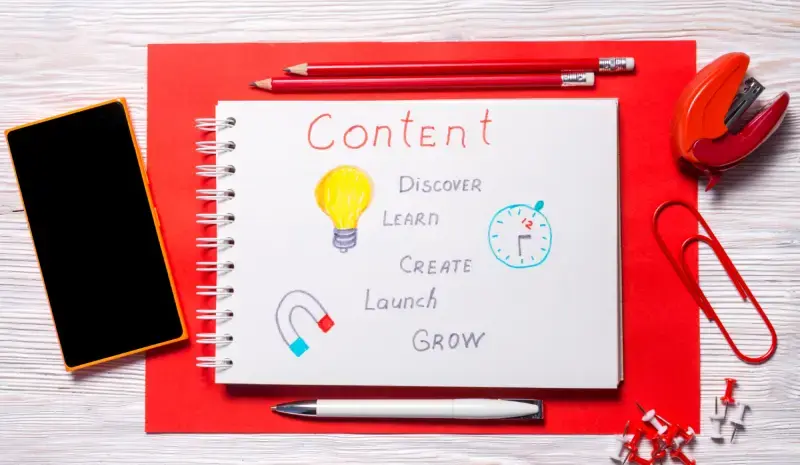 Content
Discover
Learn
12
Create
Launch
Grow